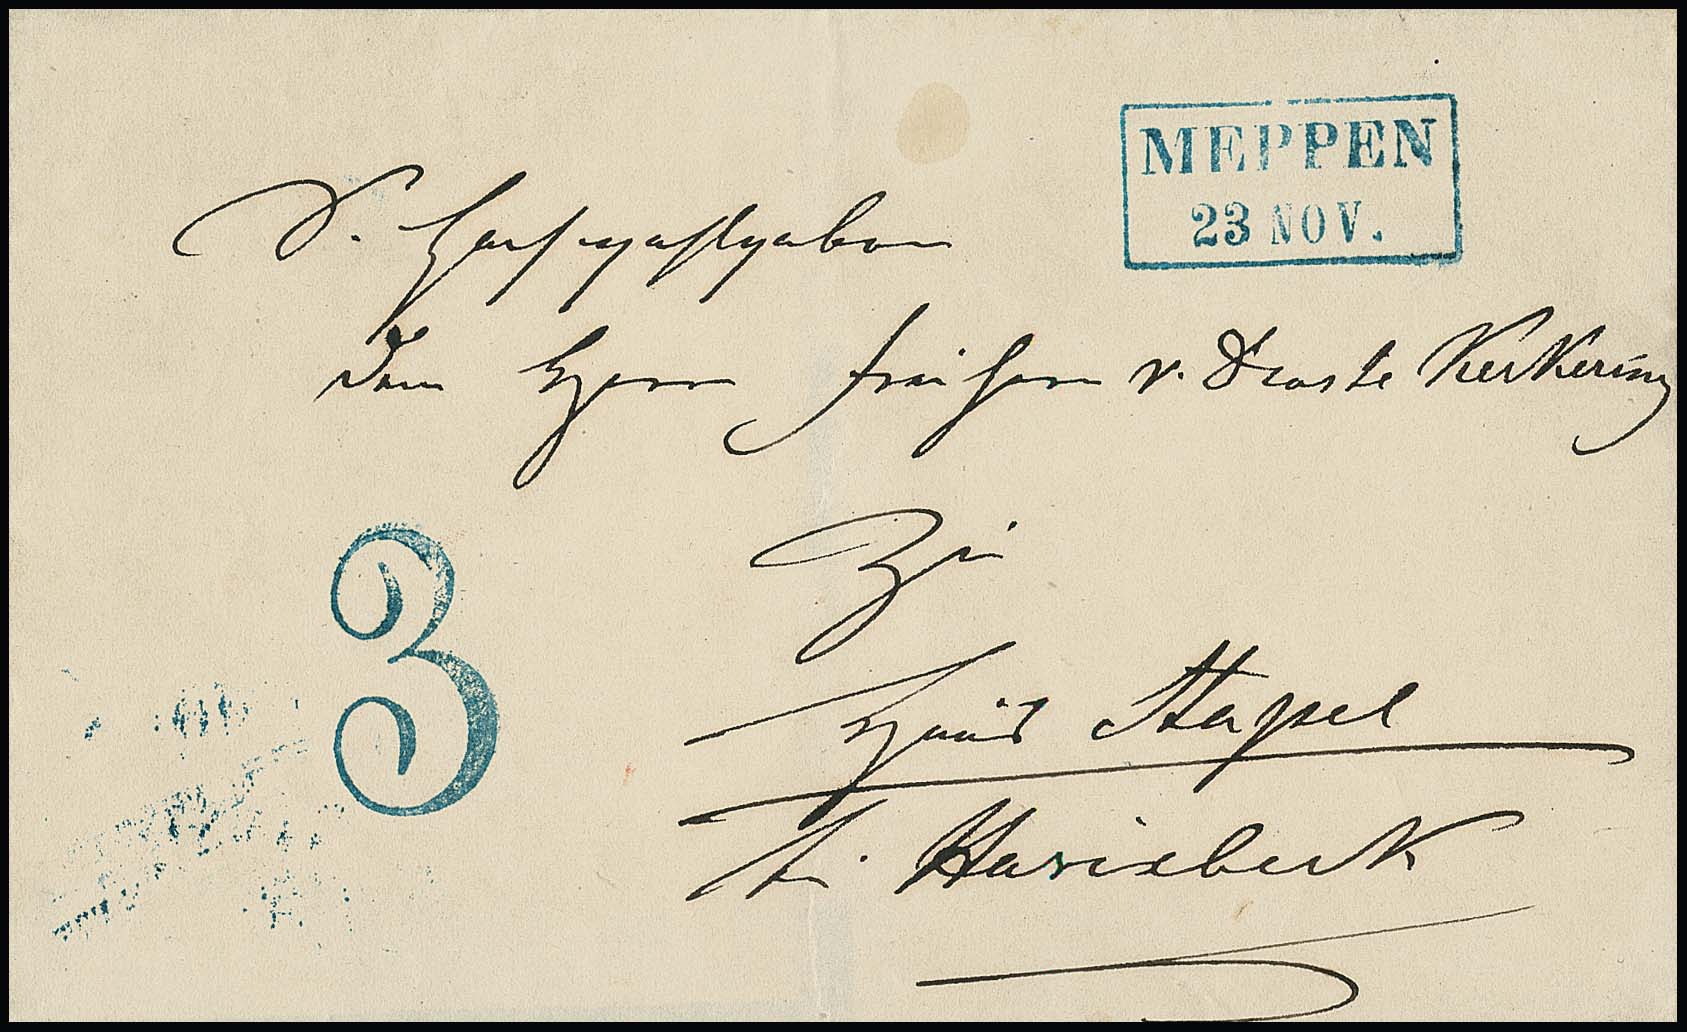 MEPPEN
23 NOV.
S. Hochgeboren
dem Herrn Freiherrn v. Droste Kerkering
3
Zu
Haus Stapel
b. Havixbeck